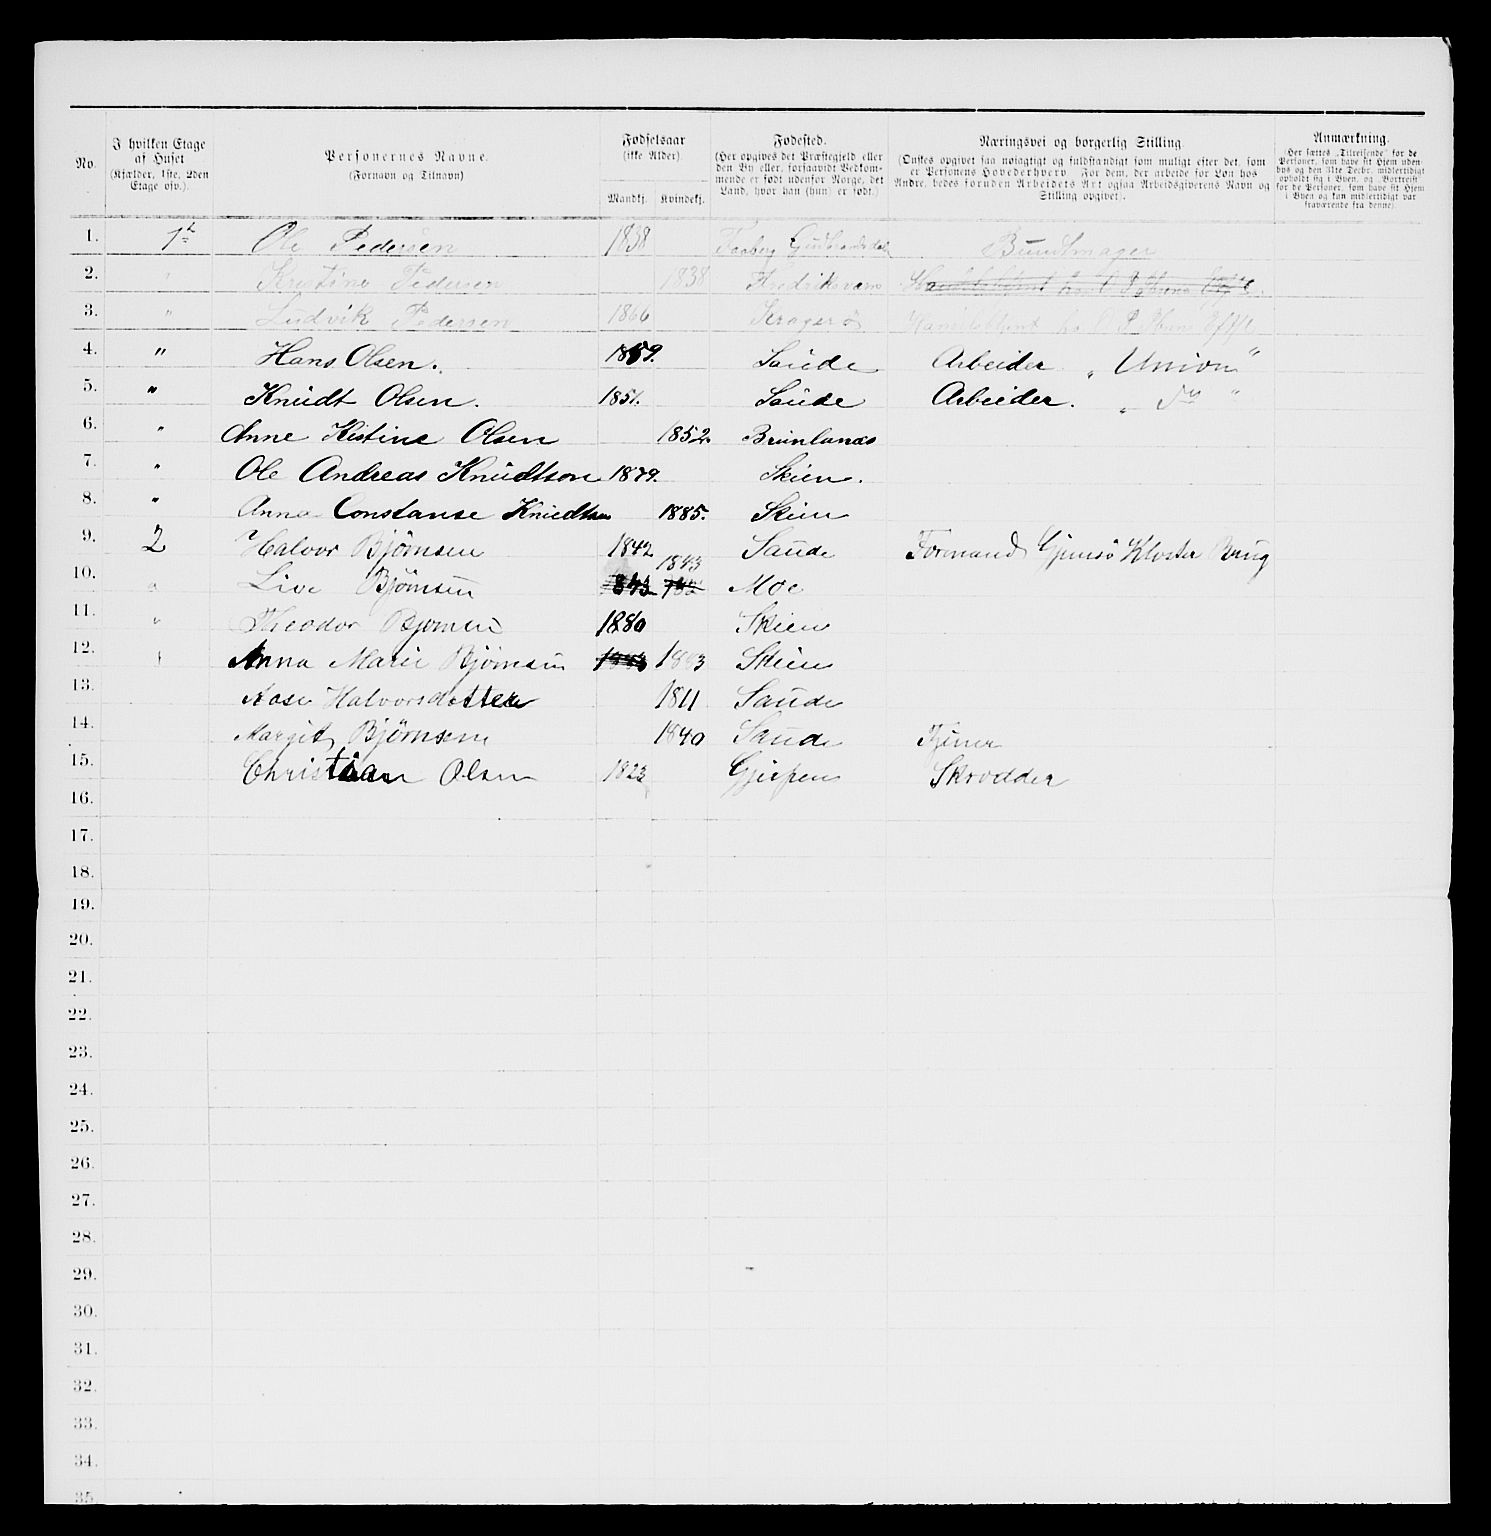 No. I hvilken Etage af Huset (Kjælder, 1ste, 2den Etage osv.). Personernes Navne. (Fornavn og Tilnavn) Fødselsaar (ikke Alder). Mandkj. Kvindekj. Fødested. (Her opgives det Præstegjeld eller den By eller, forsaavidt Vedkommende er født udenfor Norge, det Land, hvor han (hun) er født.) Næringsvei og borgerlig Stilling. (Ønskes opgivet saa nøiagtigt og fuldstændigt som muligt efter det, som er Personens Hovederhverv. For dem, der arbeide for Løn hos Andre, bedes foruden Arbeidets Art ogsaa Arbeidsgiverens Navn og Stilling opgivet). Anmærkning. (Her sættes „Tilreisende“ for de Personer, som have sit Hjem udenbys og den 31te Decbr. midlertidigt opholdt sig i Byen, og „Bortreist“ for de Personer, som have sit Hjem i Byen og kun midlertidigt var fraværende fra denne).
1. 1ste Ole Pedersen 1838 Faaberg Gudbrandsdal Bundtmager
2. " Kristine Pedersen 1838 Fredriksværn
3. " Ludvik Pedersen 1866 Kragerø
4. " Hans Olsen. 1859. Saude Arbeider „ Union "
5. " Knudt Olsen. 1851. Saude Arbeider. „ do "
6. " Anne Kistine Olsen 1852. Brunlanæs
7. " Ole Andreas Knudtson 1879. Skien.
8. " Anna Constanse Knudtson 1885. Skien
9. 2 Halvor Bjørnsen 1842 Saude Formand Gjemsø Kloster Brug
10. " Live Bjørnsen 1843 Moe
11. " Theodor Bjørnsen 1880 Skien
12. Anna Marie Bjørnsen 1883 Skien
13. Aase Halvorsdatter 1811 Saude
14. Margit Bjørnsen 1840 Saude Tjener
15. Christian Olsen 1823 Gjerpen Skrædder
16.
17.
18.
19.
20.
21.
22.
23.
24.
25.
26.
27.
28.
29.
30.
31.
32.
33.
34.
35.